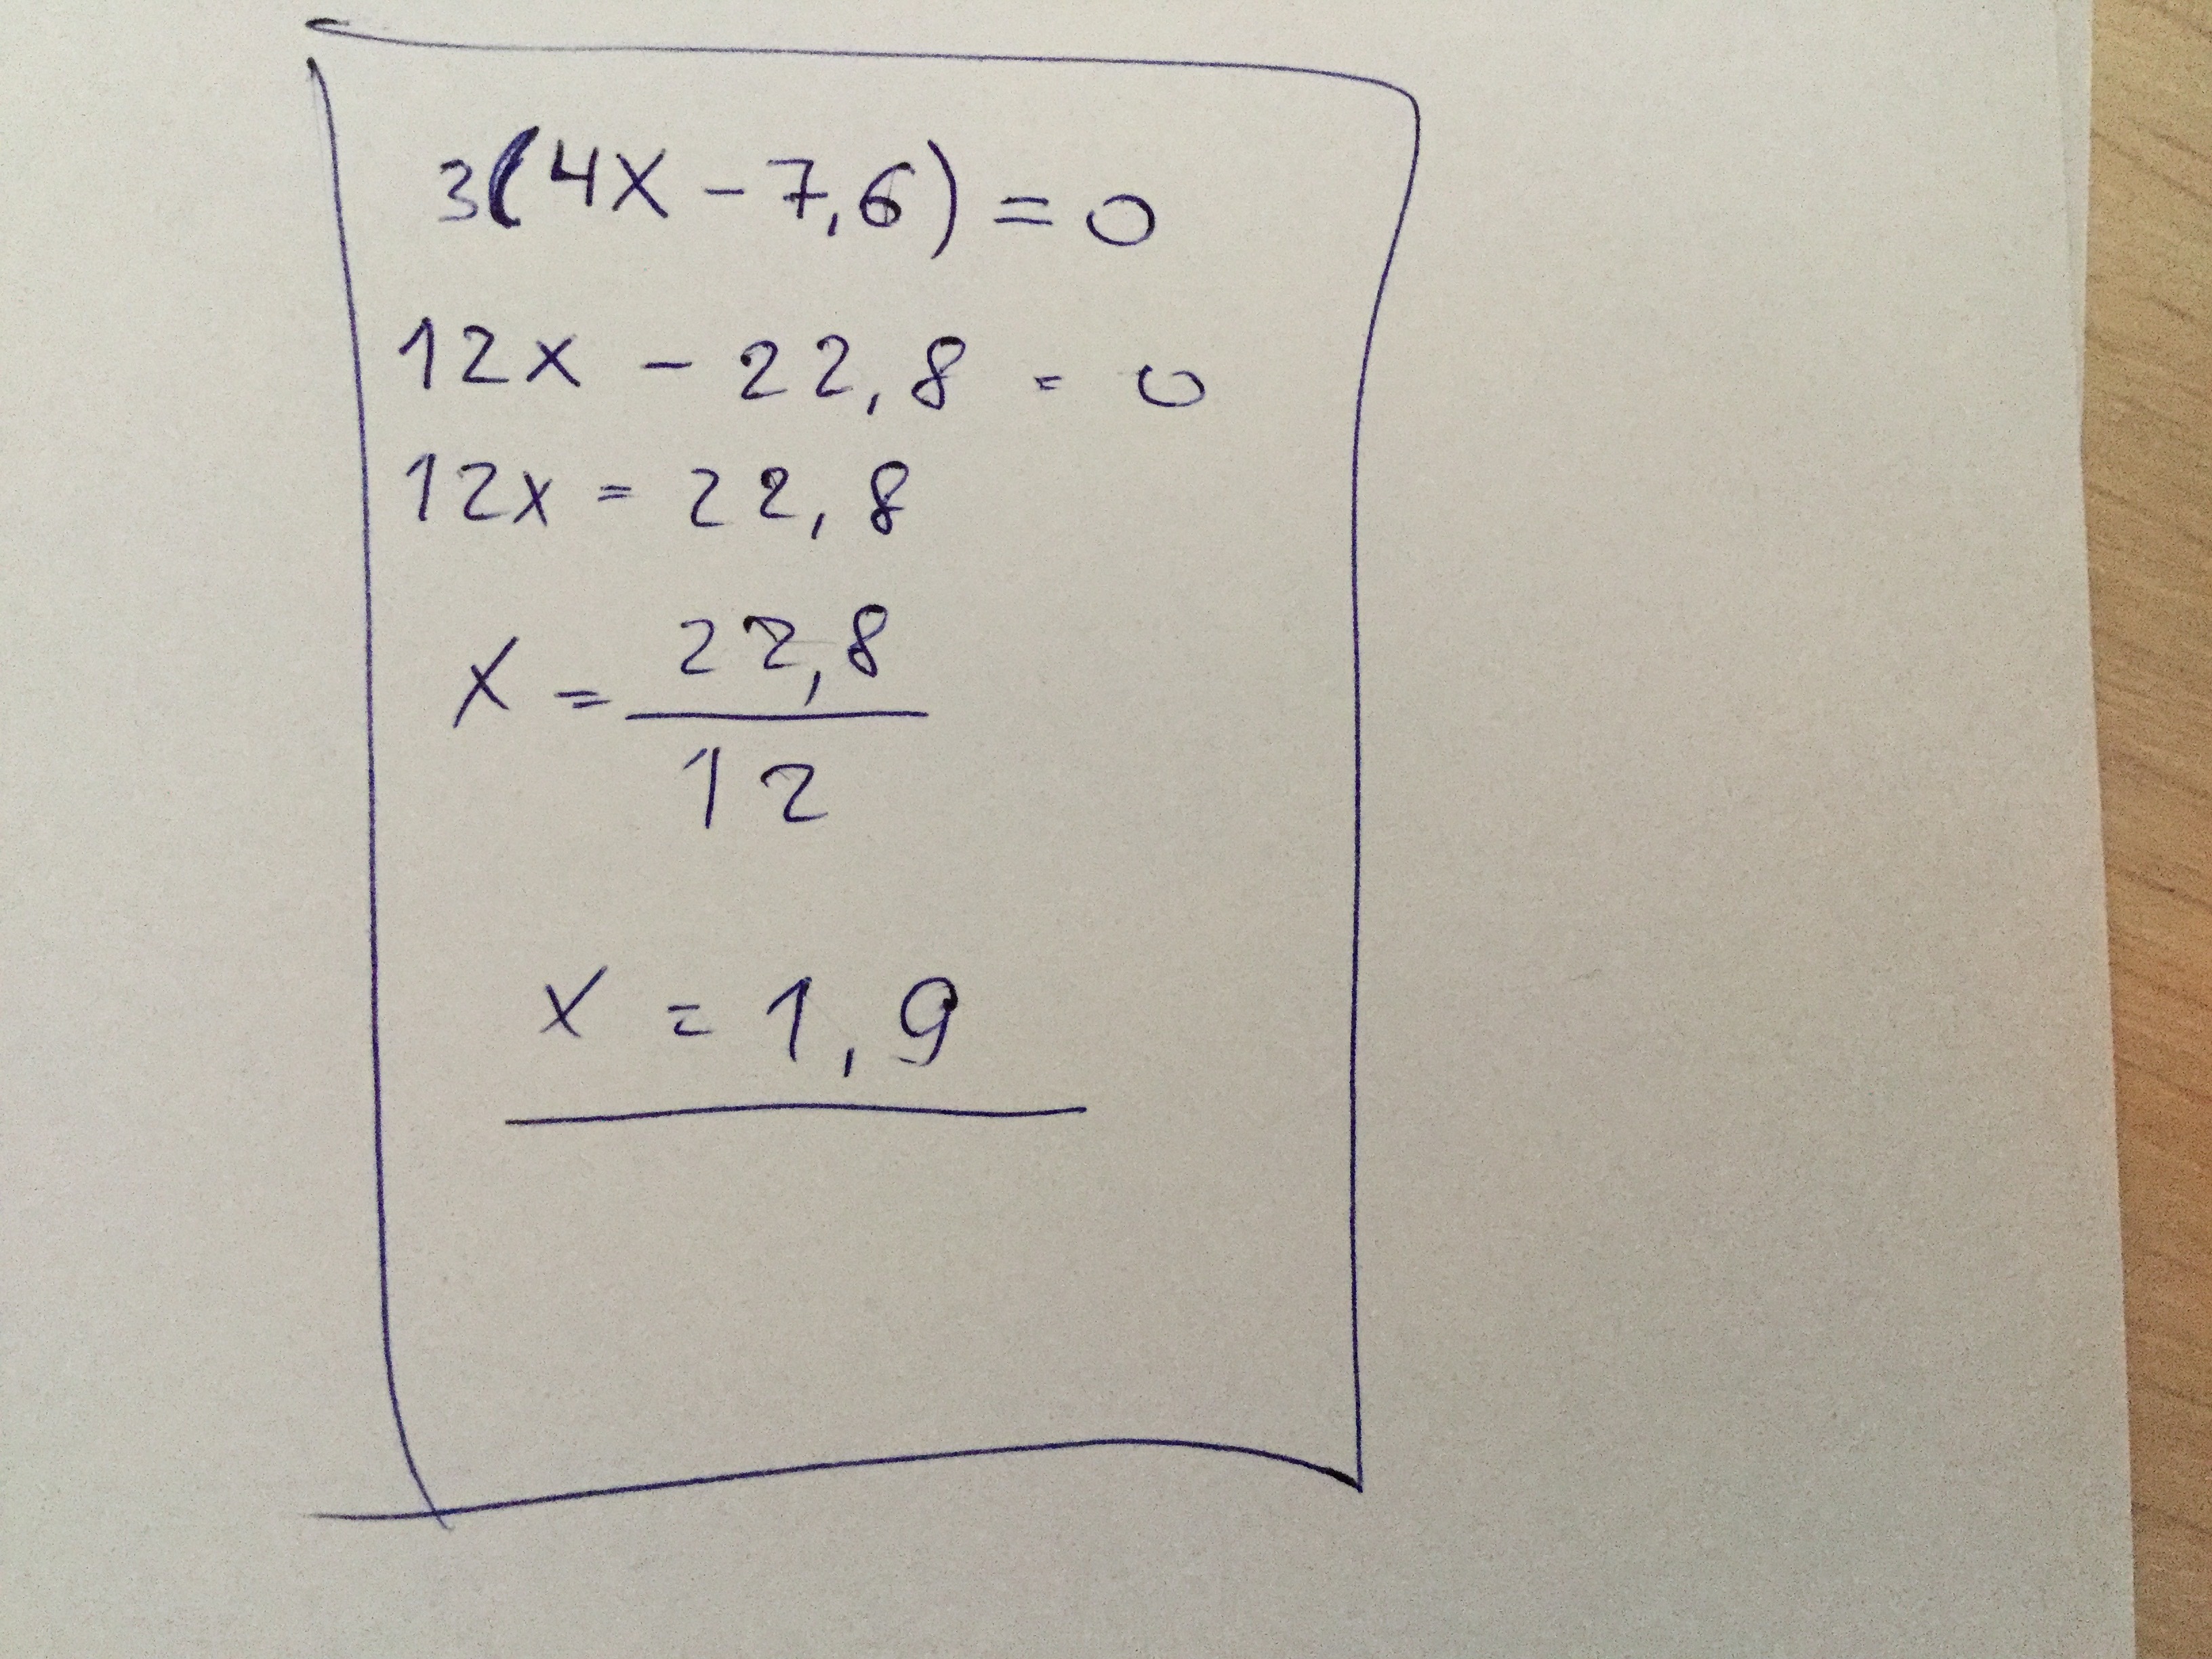 3(4x - 7,6) = 0
12x - 22,8 = 0
12x = 22,8
x = 22,8
12
x = 1,9